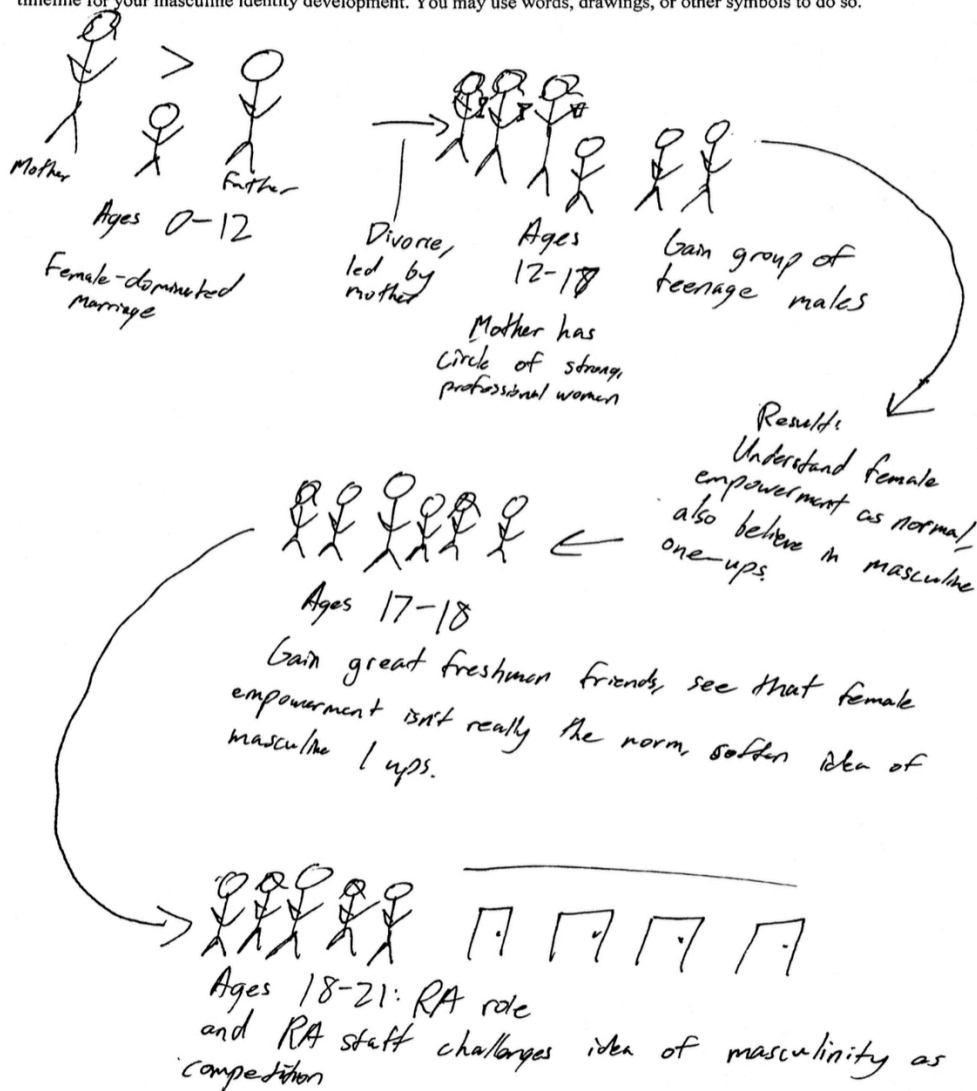 timeline for your masculine identity development. You may use words, drawings, or other symbols to do so.
>
Mother
Father
Ages 0-12
Female-dominated
marriage
Divorce,
led by
mother
Ages
12-18
Mother has
circle of strong,
professional women
Gain group of
teenage males
Result:
Understand female
empowerment as normal,
also believe in masculine
one-ups.
Ages 17-18
Gain great freshman friends, see that female
empowerment isn't really the norm, soften idea of
masculine 1 ups.
Ages 18-21: RA role
and RA staff challenges idea of masculinity as
competition